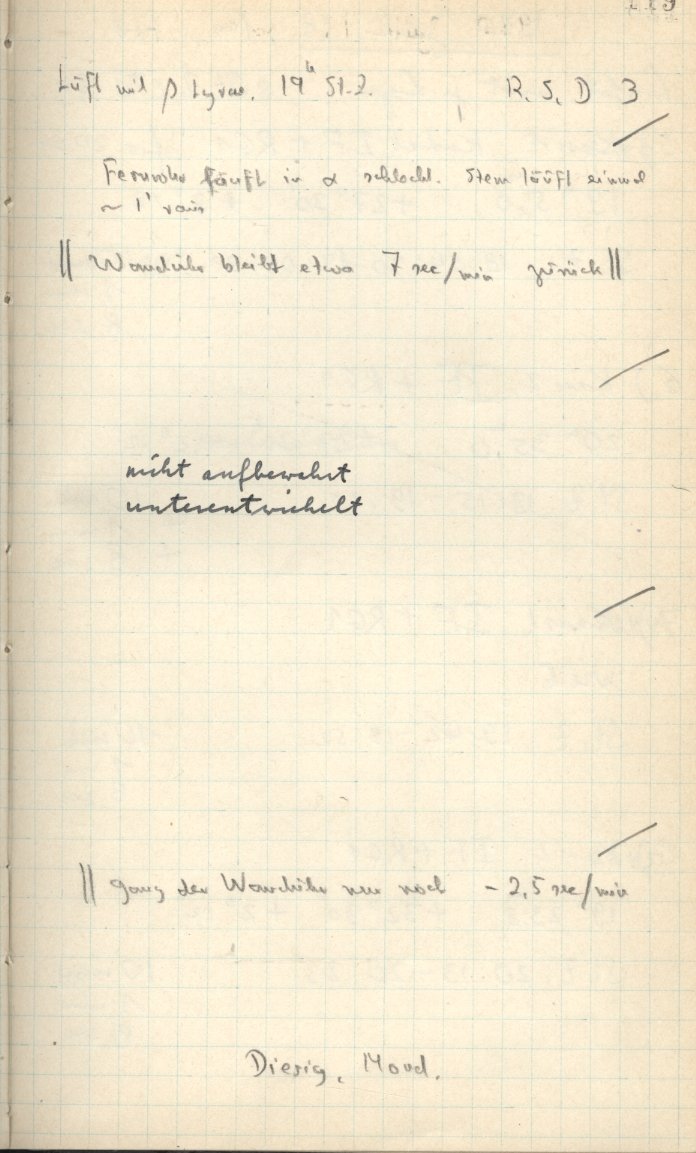 Luft mit β Lyrae. 19ʰ St.Z. R. S, D 3
Fernrohr läuft in α schlecht. Stern läuft einmal
~ 1'
|| Wanduhr bleibt etwa 7 sec/min zurück ||
nicht aufbewahrt
unterentwickelt
|| Gang der Wanduhr nur noch – 2,5 sec/min
Diesig, Mond.